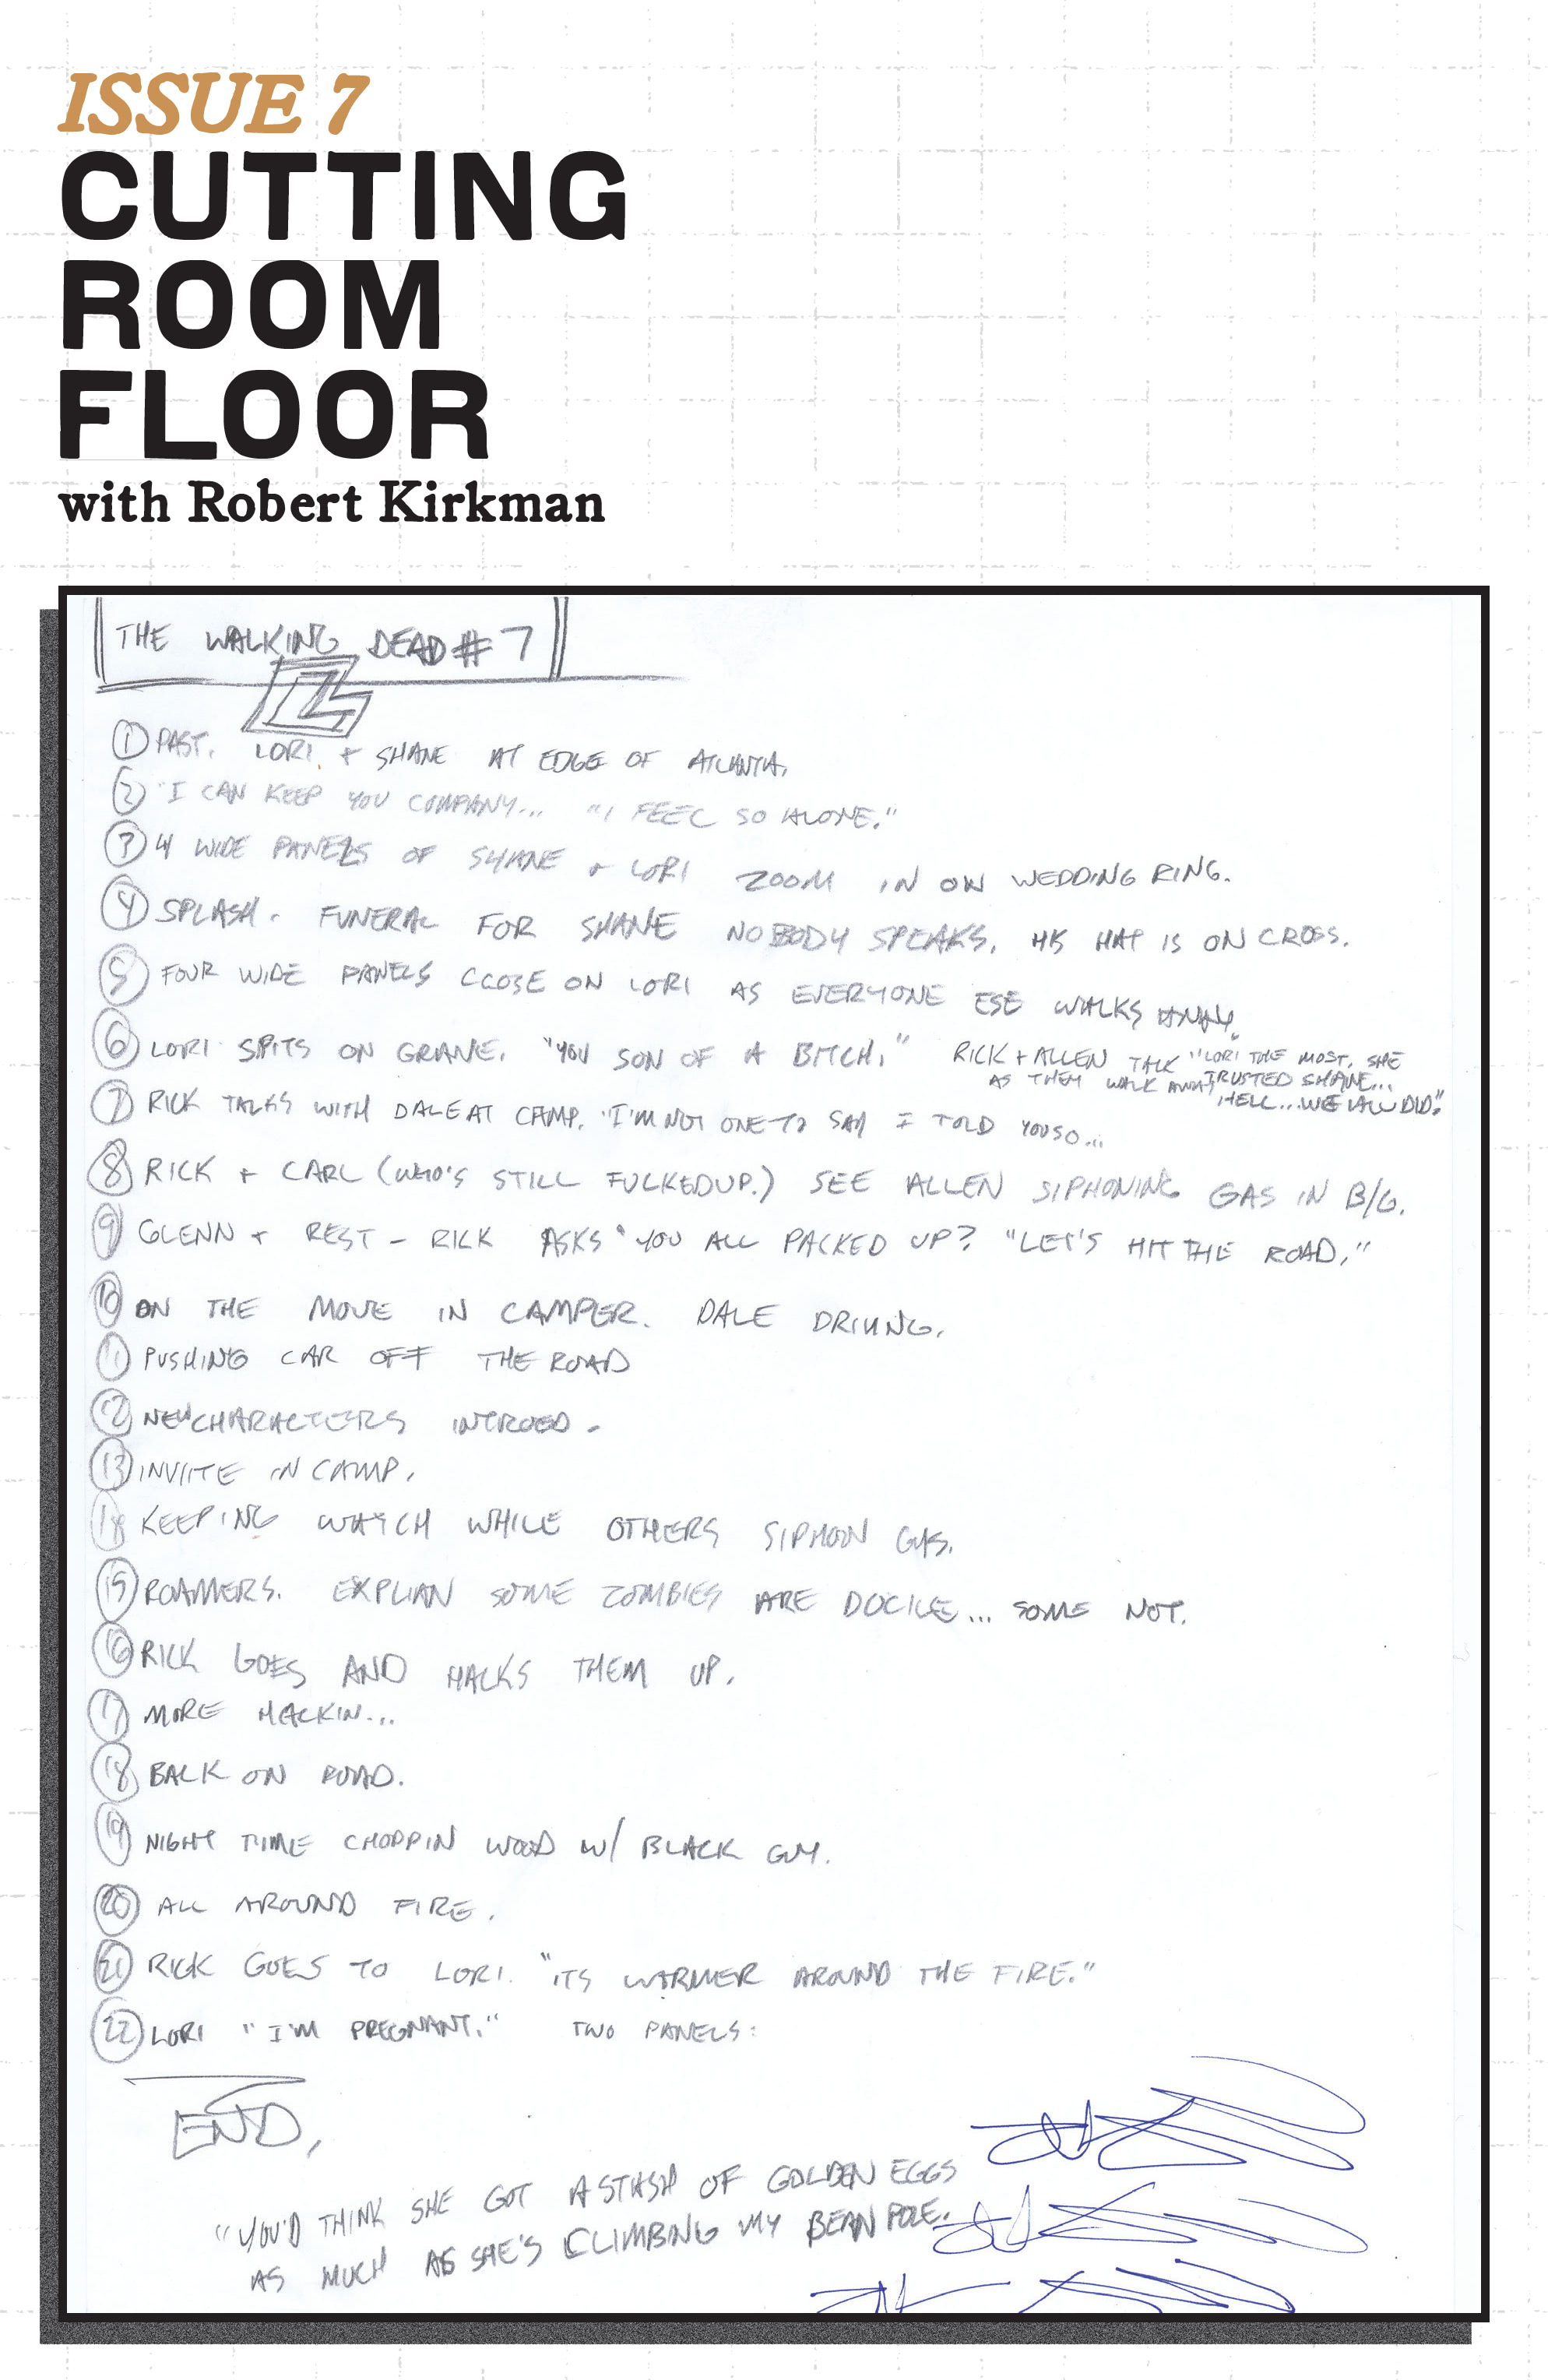 ISSUE 7
CUTTING
ROOM
FLOOR
with Robert Kirkman
THE WALKING DEAD #7
① PAST. LORI + SHANE AT EDGE OF ATLANTA.
② "I CAN KEEP YOU COMPANY... "I FEEL SO ALONE."
③ 4 WIDE PANELS OF SHANE + LORI ZOOM IN ON WEDDING RING.
④ SPLASH. FUNERAL FOR SHANE NOBODY SPEAKS. HIS HAT IS ON CROSS.
⑤ FOUR WIDE PANELS CLOSE ON LORI AS EVERYONE ESE WALKS AWAY.
⑥ LORI SPITS ON GRAVE. "YOU SON OF A BITCH." RICK + ALLEN TALK "LORI THE MOST, SHE
AS THEY WALK AWAY TRUSTED SHANE...
HELL... WE ALL DID."
⑦ RICK TALKS WITH DALE AT CAMP. "I'M NOT ONE TO SAY I TOLD YOU SO...
⑧ RICK + CARL (WHO'S STILL FUCKED UP.) SEE ALLEN SIPHONING GAS IN B/G.
⑨ GLENN + REST - RICK ASKS "YOU ALL PACKED UP? "LET'S HIT THE ROAD."
⑩ ON THE MOVE IN CAMPER. DALE DRIVING.
⑪ PUSHING CAR OFF THE ROAD
⑫ NEW CHARACTERS INTROED -
⑬ INVIITE IN CAMP.
⑭ KEEPING WATCH WHILE OTHERS SIPHON GAS.
⑮ ROAMERS. EXPLIAN SOME ZOMBIES ARE DOCILE... SOME NOT.
⑯ RICK GOES AND HACKS THEM UP.
⑰ MORE HACKIN...
⑱ BACK ON ROAD.
⑲ NIGHT TIME CHOPPIN WOOD W/ BLACK GUY.
⑳ ALL AROUND FIRE.
㉑ RICK GOES TO LORI. "ITS WARMER AROUND THE FIRE."
㉒ LORI "I'M PREGNANT." TWO PANELS:
END,
"YOU'D THINK SHE GOT A STASH OF GOLDEN EGGS
AS MUCH AS SHE'S CLIMBING MY BEAN POLE.